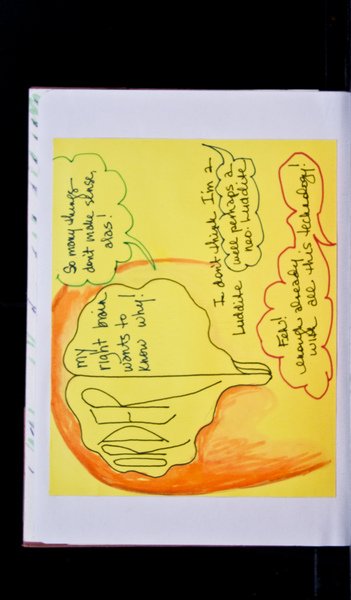 So many things
don't make sense,
alas!
my
right brain
wants to
know why!
ORDER
I don't think I'm a
Luddite well perhaps a
neo-Luddite
Feh!
enough already
with all this technology!